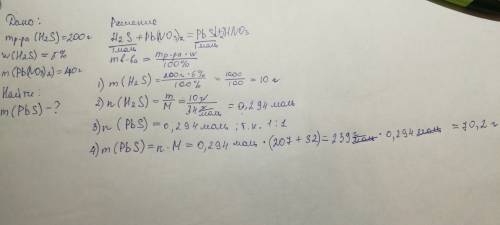 Дано:
mр-ра (H₂S)=200г
w(H₂S)=5%
m(Pb(NO₃)₂)=40г
Найти:
m(PbS)-?
Решение
H₂S + Pb(NO₃)₂ = PbS+2HNO₃
1моль 1моль
mв-ва = mр-ра·w / 100%
1) m(H₂S) = 200г·5% / 100% = 1000 / 100 = 10 г
2) n(H₂S) = m / M = 10г / 34 г/моль = 0,294 моль
3) n(PbS) = 0,294 моль, т.к. 1:1
4) m(PbS) = n·M = 0,294 моль·(207+32) = 239 г/моль · 0,294 моль = 70,2 г